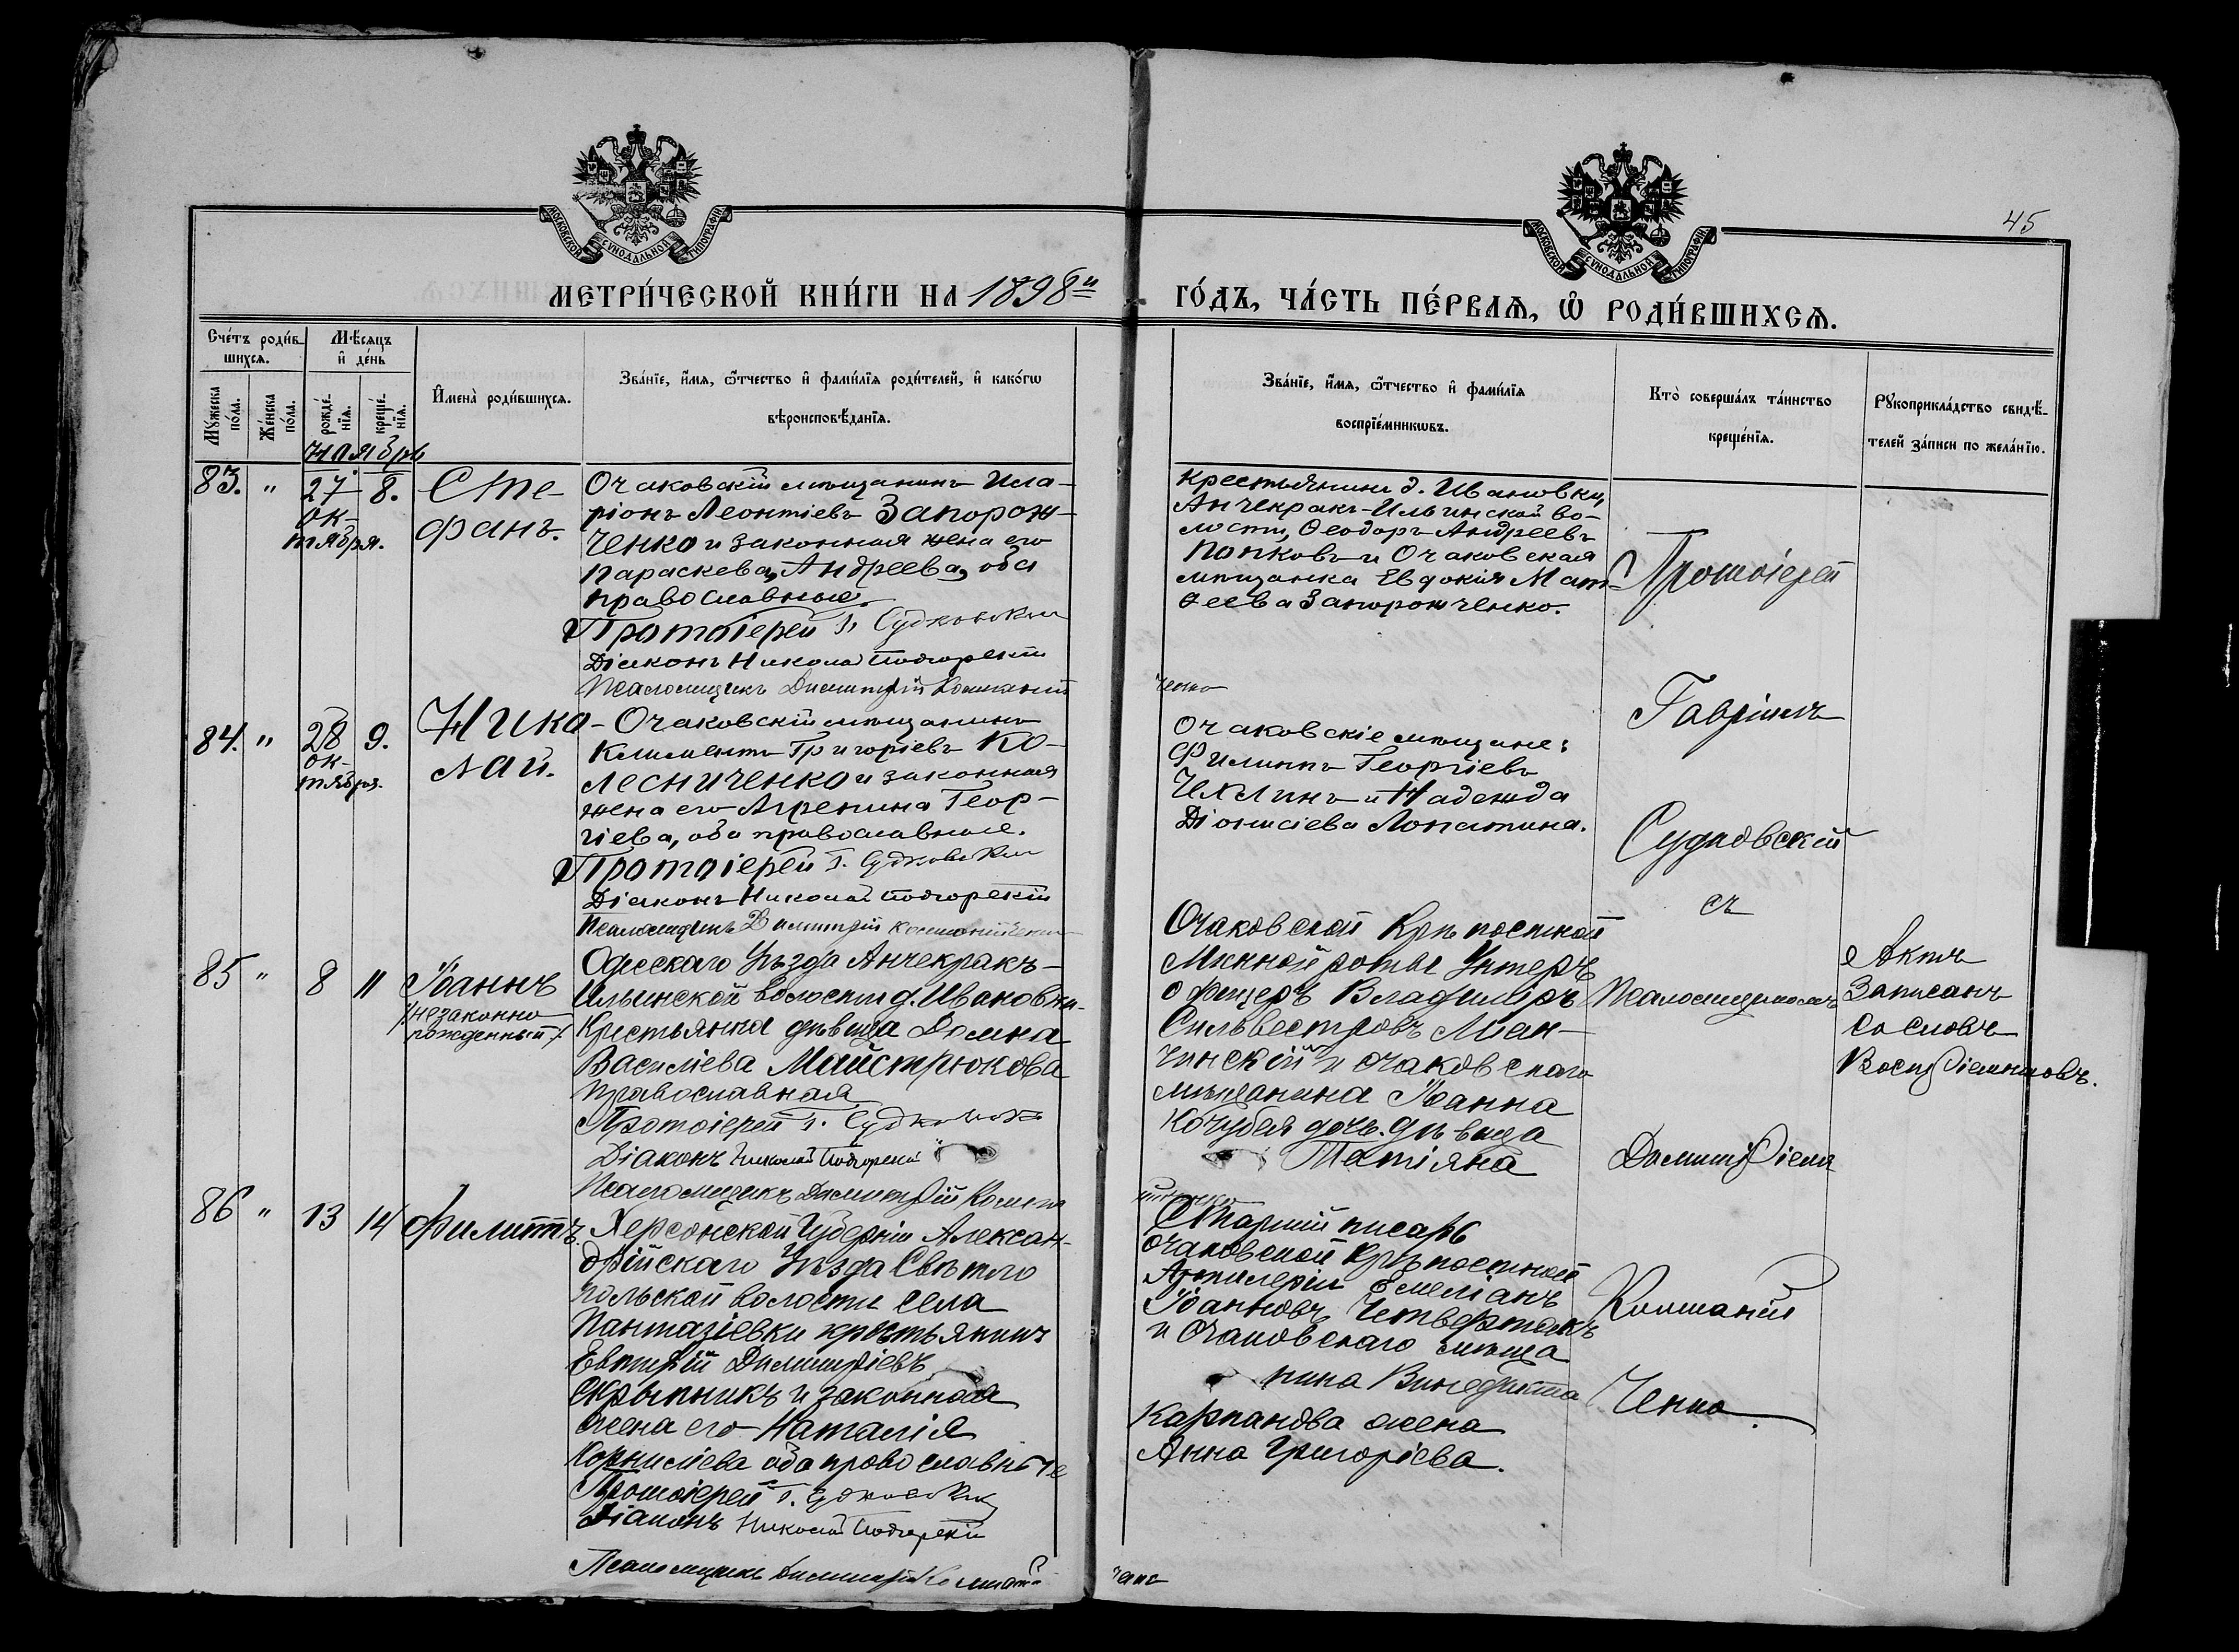 45
МОСКОВСКОЙ СѴНОДАЛЬНОЙ ТИПОГРАФІИ
МОСКОВСКОЙ СѴНОДАЛЬНОЙ ТИПОГРАФІИ
МЕТРИ́ЧЕСКОЙ КНИ́ГИ НА 1898й
ГО́ДЪ, ЧА́СТЬ ПЕ́РВАѦ, Ѡ҆ РОДИ́ВШИХСѦ.
Сче́тъ роди́в-
шихсѧ.
Мꙋ́жеска по́ла.
Же́нска по́ла.
Мѣ́сѧцъ
и҆ де́нь
рожде́-нїѧ.
креще́-нїѧ.
И҆мена̀ роди́вшихсѧ.
Зва́нїе, и҆́мѧ, ѻ҆́тчество и҆ фами́лїѧ роди́телей, и҆ како́гѡ
вѣроисповѣ́данїѧ.
Зва́нїе, и҆́мѧ, ѻ҆́тчество и҆ фами́лїѧ
воспрїе́мникѡвъ.
Кто̀ соверша́лъ та́инство
креще́нїѧ.
Рꙋкоприкла́дство свидѣ́-
телей за́писи по жела́нїю.
Ноябрь
83.
"
27
ок-
тября.
8.
Сте-
фанъ.
Очаковскій мѣщанинъ Ила-
ріонъ Леонтіевъ Запорож-
ченко и законная жена его
Параскева Андреева, оба
православные.
Протоіерей Г. Судковскій
Діаконъ Николай Подгорскій
Псаломщикъ Димитрій Колтоній
ченко
Крестьянинъ д. Ивановки,
Анчекракъ-Ильинской во-
лости, Ѳеодоръ Андреевъ
Попковъ и Очаковская
мѣщанка Евдокія Мат-
ѳеева Запорожченко.
Протоіерей
Гавріилъ
Судковскій
съ
Псаломщикомъ
Димитріемъ
84.
"
28
ок-
тября.
9.
Нико-
лай.
Очаковскій мѣщанинъ
Климентъ Григоріевъ Ко-
лесниченко и законная
жена его Агрепина Геор-
гіева, оба православные.
Протоіерей Г. Судковскій
Діаконъ Николай Подгорскій
Псаломщикъ Димитрій
Очаковскіе мѣщане:
Филиппъ Георгіевъ
и Надежда
Діонисіева Лопатина.
85
"
8
11
Іоаннъ
/незаконно
рожденный/.
Одесскаго Уѣзда Анчекракъ-
Ильинской волости д. Ивановки-
Крестьянка дѣвица Домна
Василіева Майстрюкова
православная
Протоіерей Г. Судковскій
Діаконъ Николай Подгорскій
Псаломщикъ Димитрій
Очаковской Крѣпостной
Минной роты Унтеръ
офицеръ Владиміръ
Сильвестровъ Лиан-
чинскій и очаковскаго
мѣщанина Іоанна
Кочубея дочь дѣвица
Татіяна
Актъ
Записанъ
со словъ
Воспріемниковъ.
86
"
13
14
Филиппъ.
Херсонской Губерніи Алексан-
дрійскаго Уѣзда Свѣтло
польской волости села
Пантазіевки крестьянинъ
Евтихій Димитріевъ
Скрыпникъ и законная
жена его Наталія
Корниліева оба православные
Протоіерей Г. Судковскій
Діаконъ Николай Подгорскій
Псаломщикъ Димитрій
Старшій писарь
очаковской Крѣпостной
Артилеріи Емеліанъ
Іоанновъ Четвертакъ
и Очаковскаго мѣща
нина Винедикта
Карпанова жена
Анна Григоріева.
ченко.